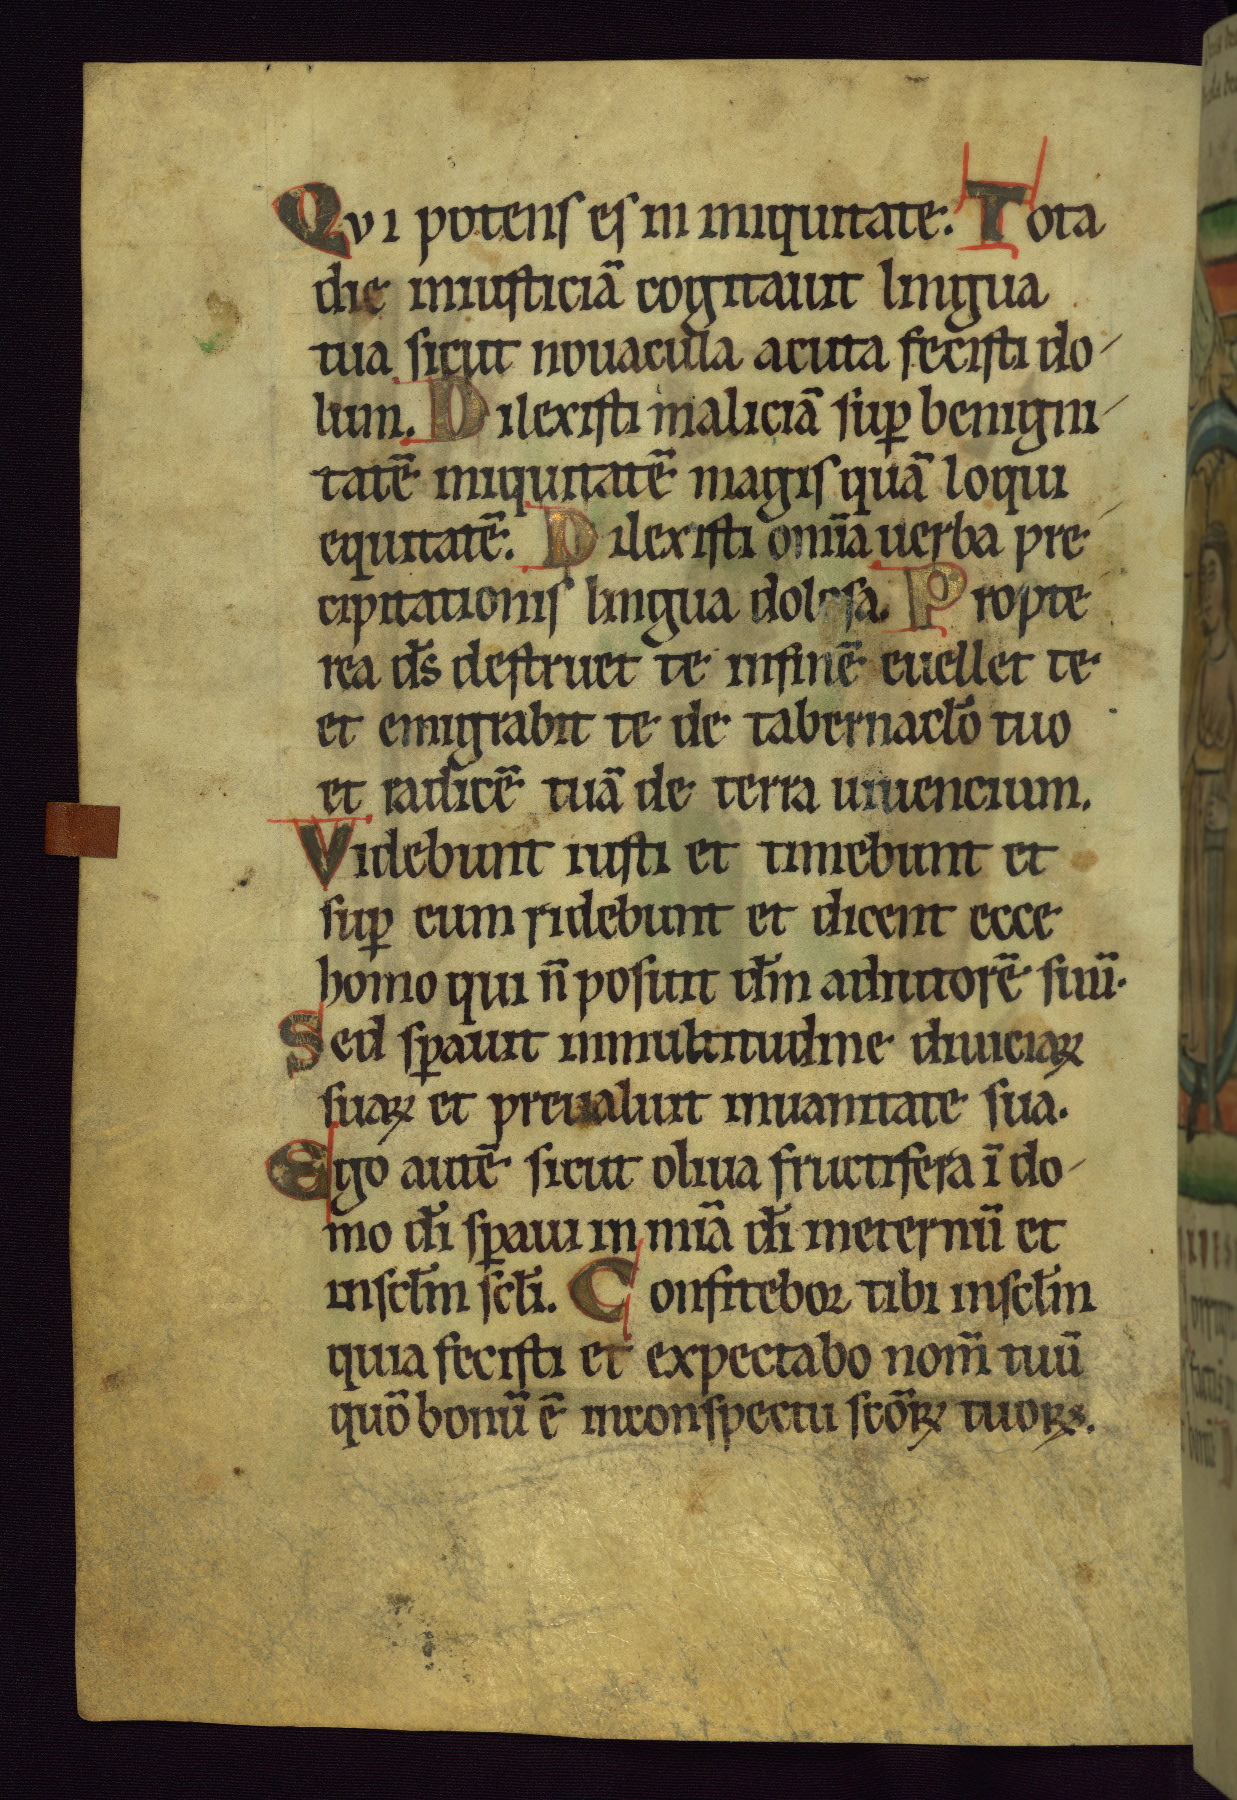 Qui potens es in iniquitate. Tota
die iniusticiā cogitauit lingua
tua sicut nouacula acuta fecisti do-
lum. Dilexisti maliciā sup̱ benigni-
tatē iniquitatē magis quā loqui
equitatē. Dilexisti om̄ia uerba pre-
cipitationis lingua dolosa. Propte
rea d̄s destruet te infinē euellet te
et emigrabit te de tabernacl̄o tuo
et radicē tuā de terra uiuencium.
Videbunt iusti et timebunt et
sup̱ eum ridebunt et dicent ecce
homo qui n̄ posuit d̄m adiutorē suū.
Sed sp̱auit inmultitudine diuiciaꝝ
suaꝝ et preualuit inuanitate sua.
Ego autē sicut oliua fructifera ī do-
mo d̄i sp̱aui in mīa d̄i ineternū et
inscl̄m scl̄i. Confitebor tibi inscl̄m
quia fecisti et expectabo nom̄ tuū
quō bonū ē inconspectu scōꝝ tuoꝝ.